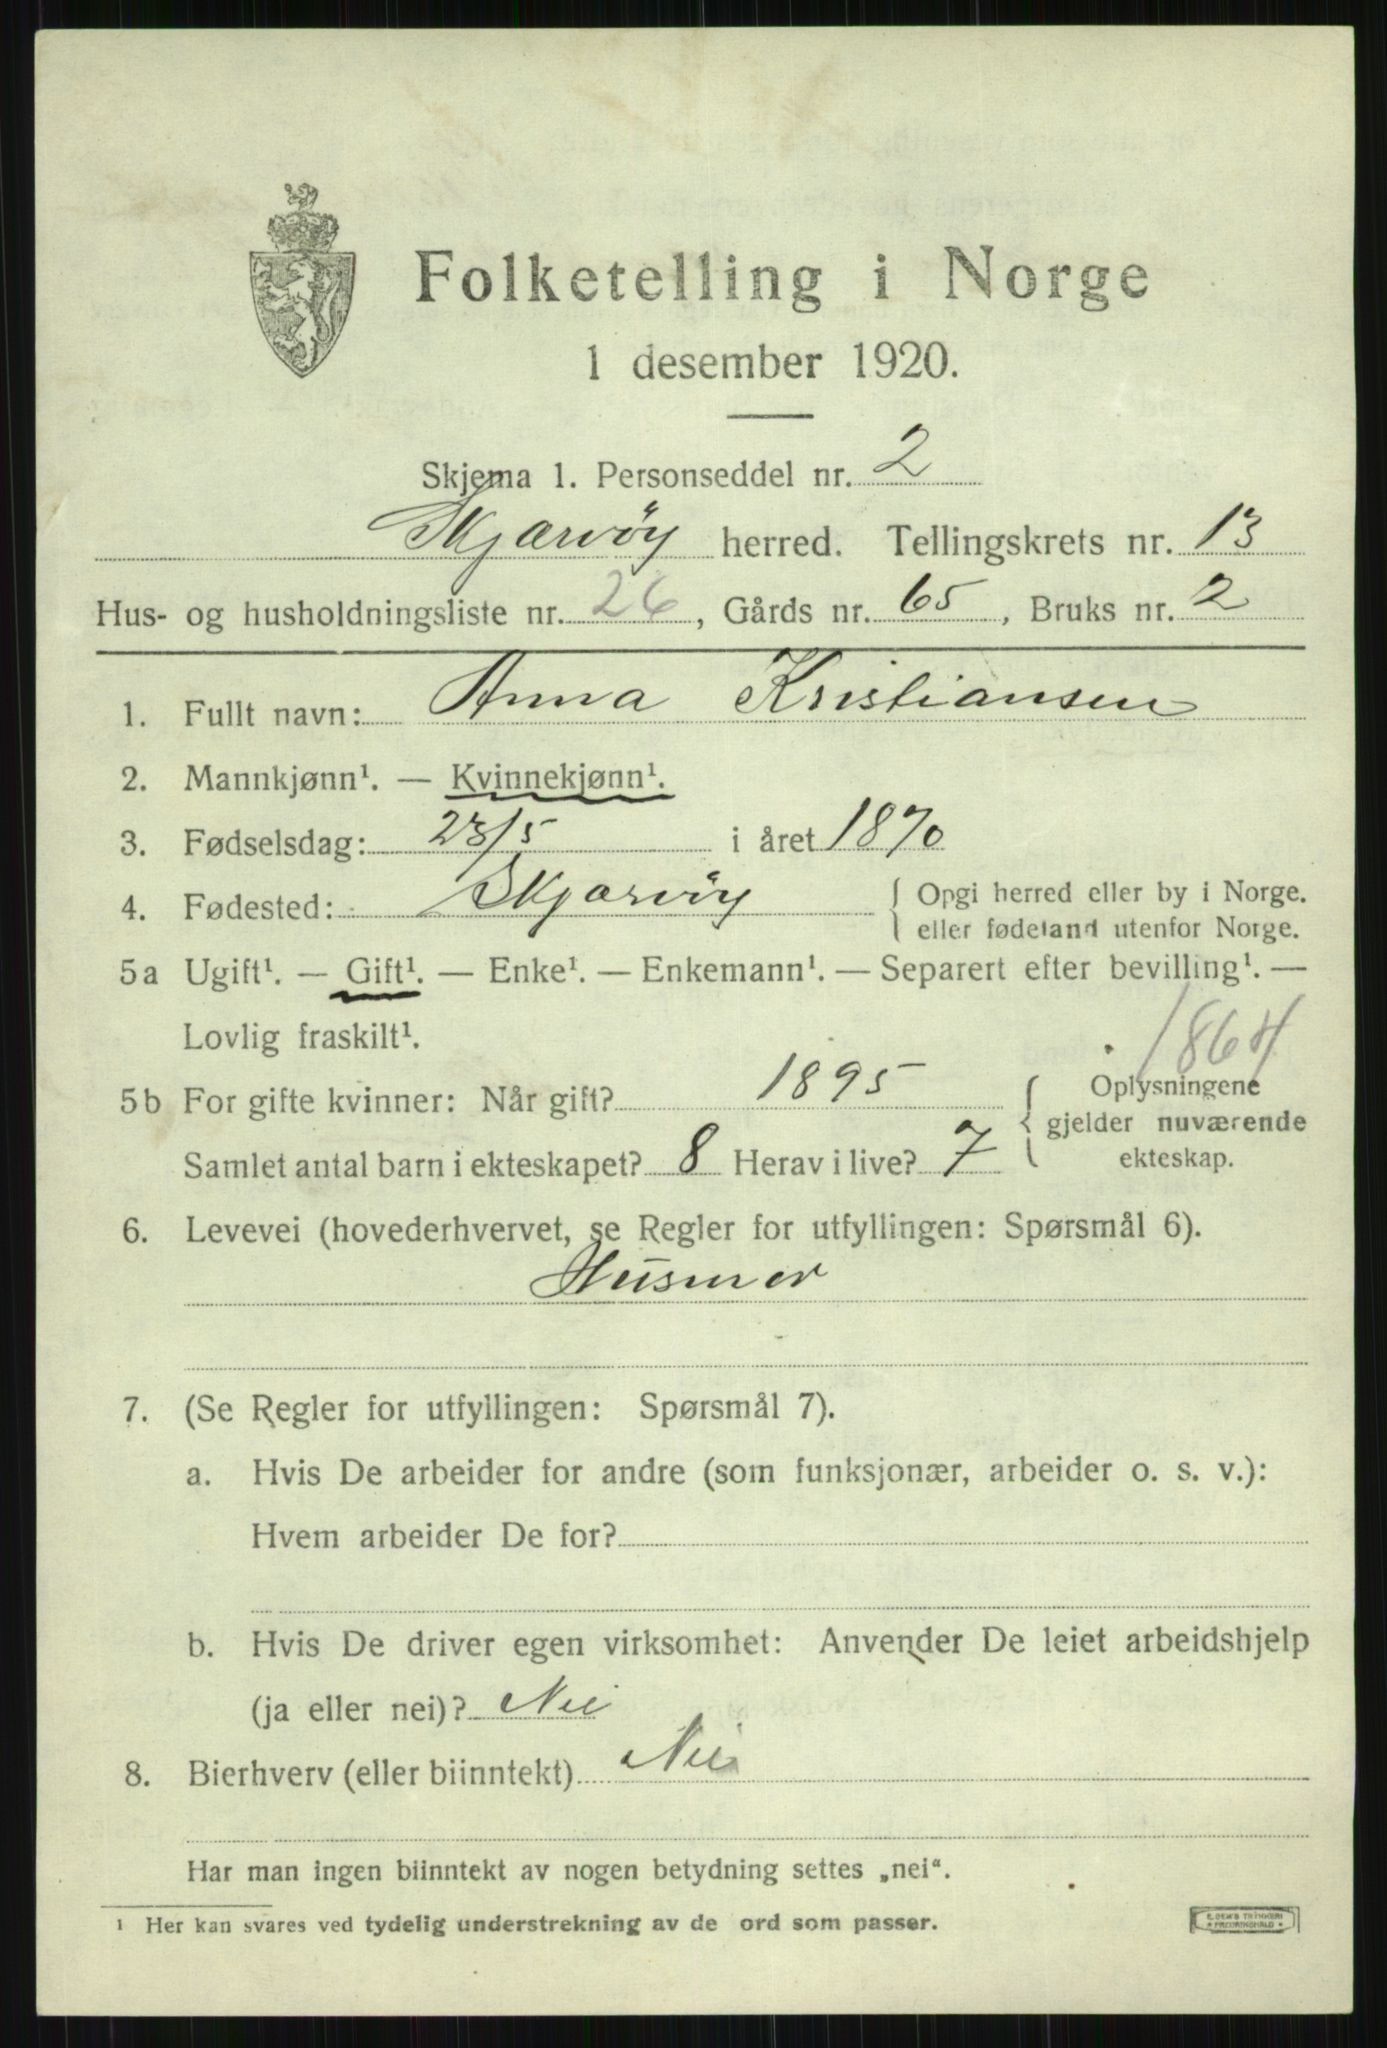 Folketelling i Norge
1 desember 1920.
Skjema 1. Personseddel nr. 2
Skjærvöy herred. Tellingskrets nr. 13
Hus- og husholdningsliste nr. 26, Gårds nr. 65, Bruks nr. 2
1. Fullt navn: Anna Kristiansen
2. Mannkjønn¹. — Kvinnekjønn¹.
3. Fødselsdag: 23/5 i året 1870
4. Fødested: Skjærvöy { Opgi herred eller by i Norge.
eller fødeland utenfor Norge.
5a Ugift¹. — Gift¹. — Enke¹. — Enkemann¹. — Separert efter bevilling¹. —
Lovlig fraskilt¹.
1864
5b For gifte kvinner: Når gift? 1895 Oplysningene
gjelder nuværende
Samlet antal barn i ekteskapet? 8 Herav i live? 7 ekteskap.
6. Levevei (hovederhvervet, se Regler for utfyllingen: Spørsmål 6).
Husmor
7. (Se Regler for utfyllingen: Spørsmål 7).
a. Hvis De arbeider for andre (som funksjonær, arbeider o. s. v.):
Hvem arbeider De for?
b. Hvis De driver egen virksomhet: Anvender De leiet arbeidshjelp
(ja eller nei)? Nei
8. Bierhverv (eller biinntekt) Nei
Har man ingen biinntekt av nogen betydning settes „nei“.
¹ Her kan svares ved tydelig understrekning av de ord som passer.